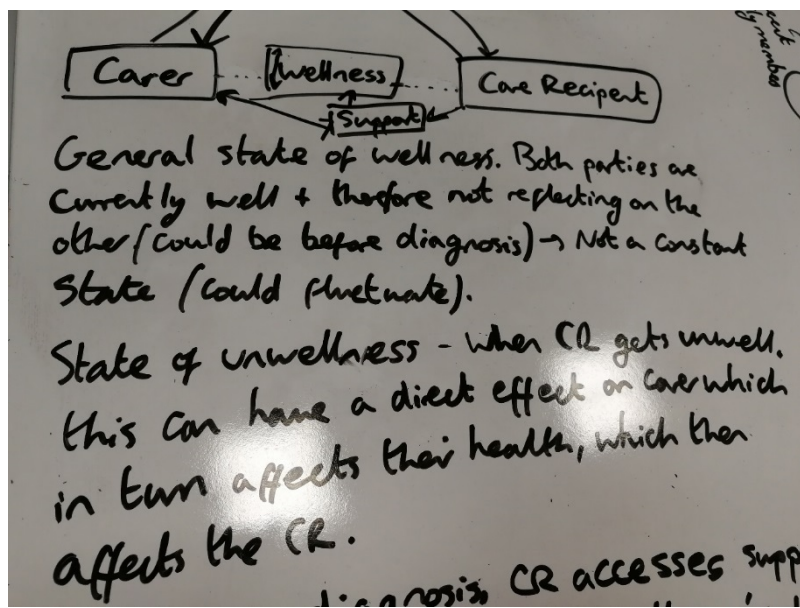 Carer
Wellness
Care Recipent
Support
General state of wellness. Both parties are
currently well + therefore not reflecting on the
other (could be before diagnosis) → Not a constant
state (could fluctuate).
State of unwellness - when CR gets unwell,
this can have a direct effect on carer which
in turn affects their health, which then
affects the CR.
diagnosis, CR accesses supp